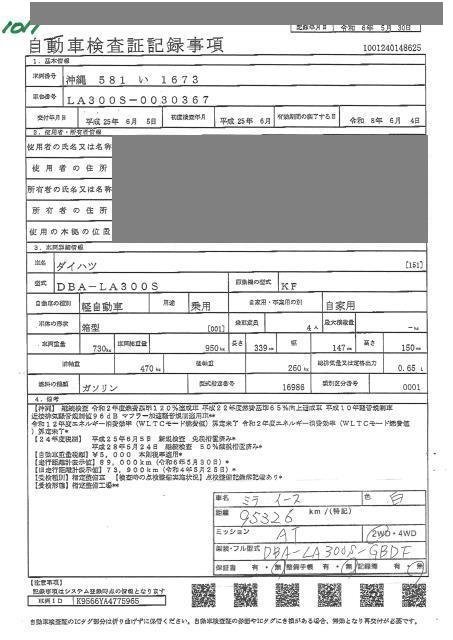 10/1
記録年月日 令和 6年 5月 30日
自動車検査証記録事項
1001240148625
1. 基本情報
車両番号 沖縄 581 い 1673
車台番号 LA300S-0030367
交付年月日 平成 25年 6月 5日 初度検査年月 平成 25年 6月 有効期間の満了する日 令和 8年 6月 4日
2. 使用者・所有者情報
使用者の氏名又は名称
使用者の住所
所有者の氏名又は名称
所有者の住所
使用の本拠の位置
3. 車両詳細情報
車名 ダイハツ [151]
型式 DBA-LA300S 原動機の型式 KF
自動車の種別 軽自動車 用途 乗用 自家用・事業用の別 自家用
車体の形状 箱型 [001] 乗車定員 4人 最大積載量 -kg
車両重量 730kg 車両総重量 950kg 長さ 339cm 幅 147cm 高さ 150cm
前軸重 470kg 後軸重 260kg 総排気量又は定格出力 0.65 L
燃料の種類 ガソリン 型式指定番号 16986 類別区分番号 0001
4. 備考
【沖縄】 継続検査 令和2年度燃費基準120%達成車 平成22年度燃費基準65%向上達成車 平成10年騒音規制車
近接排気騒音規制値96dB マフラー加速騒音規制適用車**
令和12年度エネルギー消費効率(WLTCモード燃費値)算定未了 令和2年度エネルギー消費効率(WLTCモード燃費値)算定未了**
【24年度税制】 平成25年6月5日 新規検査 免税措置済み*
平成28年5月24日 継続検査 50%減税措置済み*
【自動車重量税額】 ¥5,000 本則税率適用*
【走行距離計表示値】 89,000km (令和6年5月30日)*
【旧走行距離計表示値】 73,900km (令和4年5月25日)*
【受検種別】 指定整備車 【検査時の点検整備実施状況】 点検整備記録簿記載あり*
【受検形態】 指定整備工場**
車名 ミラ イース 色 白
距離 95326 km/(特記)
ミッション AT 2WD・4WD
類別・フル型式 DBA-LA300S-GBDF
保証書 有・無 整備手帳 有・無 記録簿 有・無
【注意事項】
記載事項はシステム登録時点の情報となります
車両ID K9566YA4775965
自動車検査証のICタグ部分は折り曲げずに保管ください。自動車検査証の券面やICタグにき損がある場合、無効となり再交付が必要です。